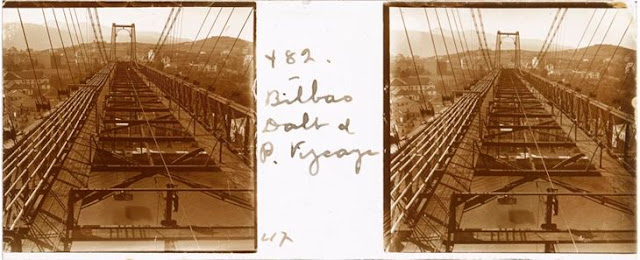 482.
Bilbao
Dalt d
P. Vizcaya
417